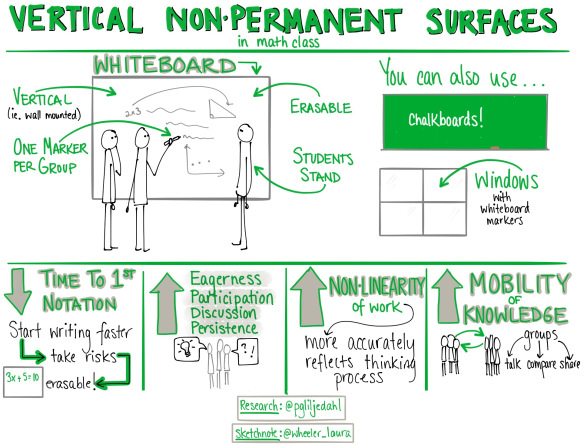 VERTICAL NON-PERMANENT SURFACES
in math class
WHITEBOARD
VERTICAL
(ie. wall mounted)
ONE MARKER
PER GROUP
2x3
ERASABLE
STUDENTS
STAND
You can also use...
Chalkboards!
WINDOWS
with
whiteboard
markers
TIME TO 1ST
NOTATION
Start writing faster
take risks
3x+5=10
erasable!
Eagerness
Participation
Discussion
Persistence
?!
NON-LINEARITY
of work
more accurately
reflects thinking
process
MOBILITY
OF
KNOWLEDGE
groups
talk compare share
Research: @pgliljedahl
Sketchnote: @wheeler_laura